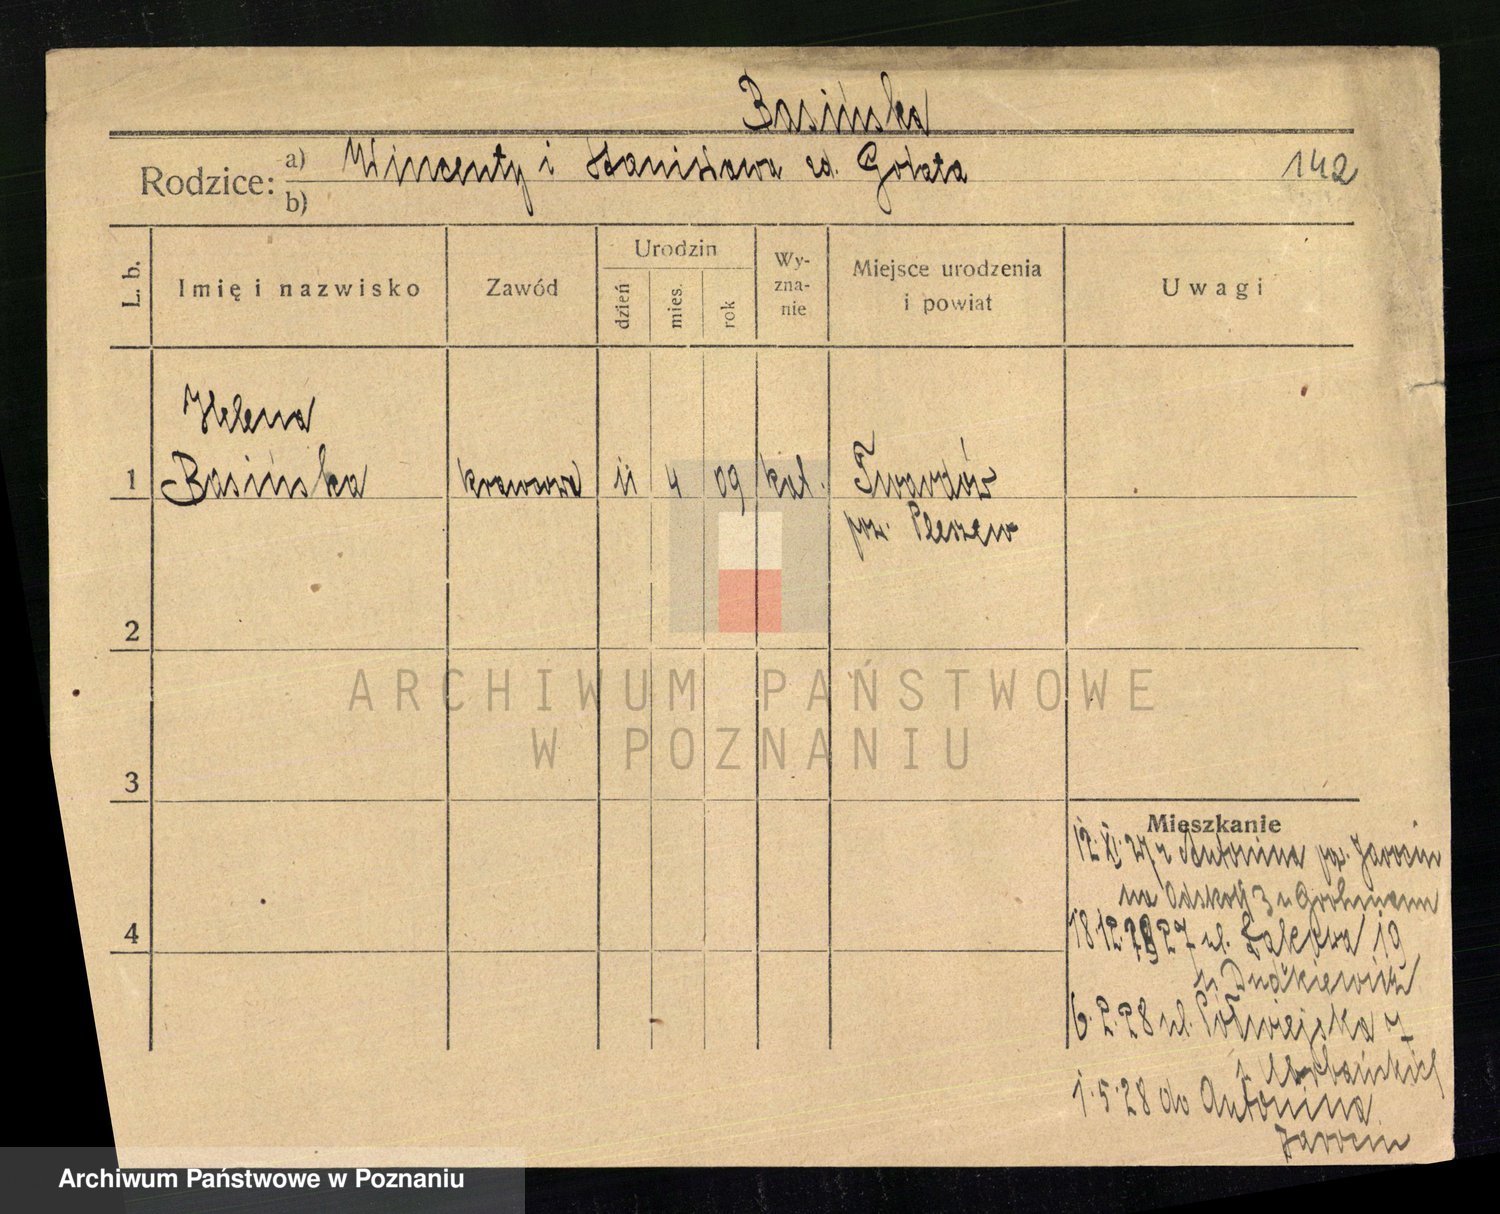 Basińska
Rodzice: a) Wincenty i Stanisława zd. Gołata 142
b)
L. b. Imię i nazwisko Zawód Urodzin dzień mies. rok Wy-zna-nie Miejsce urodzenia i powiat Uwagi
Helena
1 Basińska krawcowa 11 4 09 kat. Twardów
pow. Pleszew
2
ARCHIWUM PAŃSTWOWE
W POZNANIU
3
Mieszkanie
12.XI.27 z Antonina pow. Jarocin
na 3 u
4
18.12.1927 ul. Łąkowa 19
u
6.2.28 ul. Półwiejska
u Urbańskich
1.5.28 do Antonina
Jarocin
Archiwum Państwowe w Poznaniu